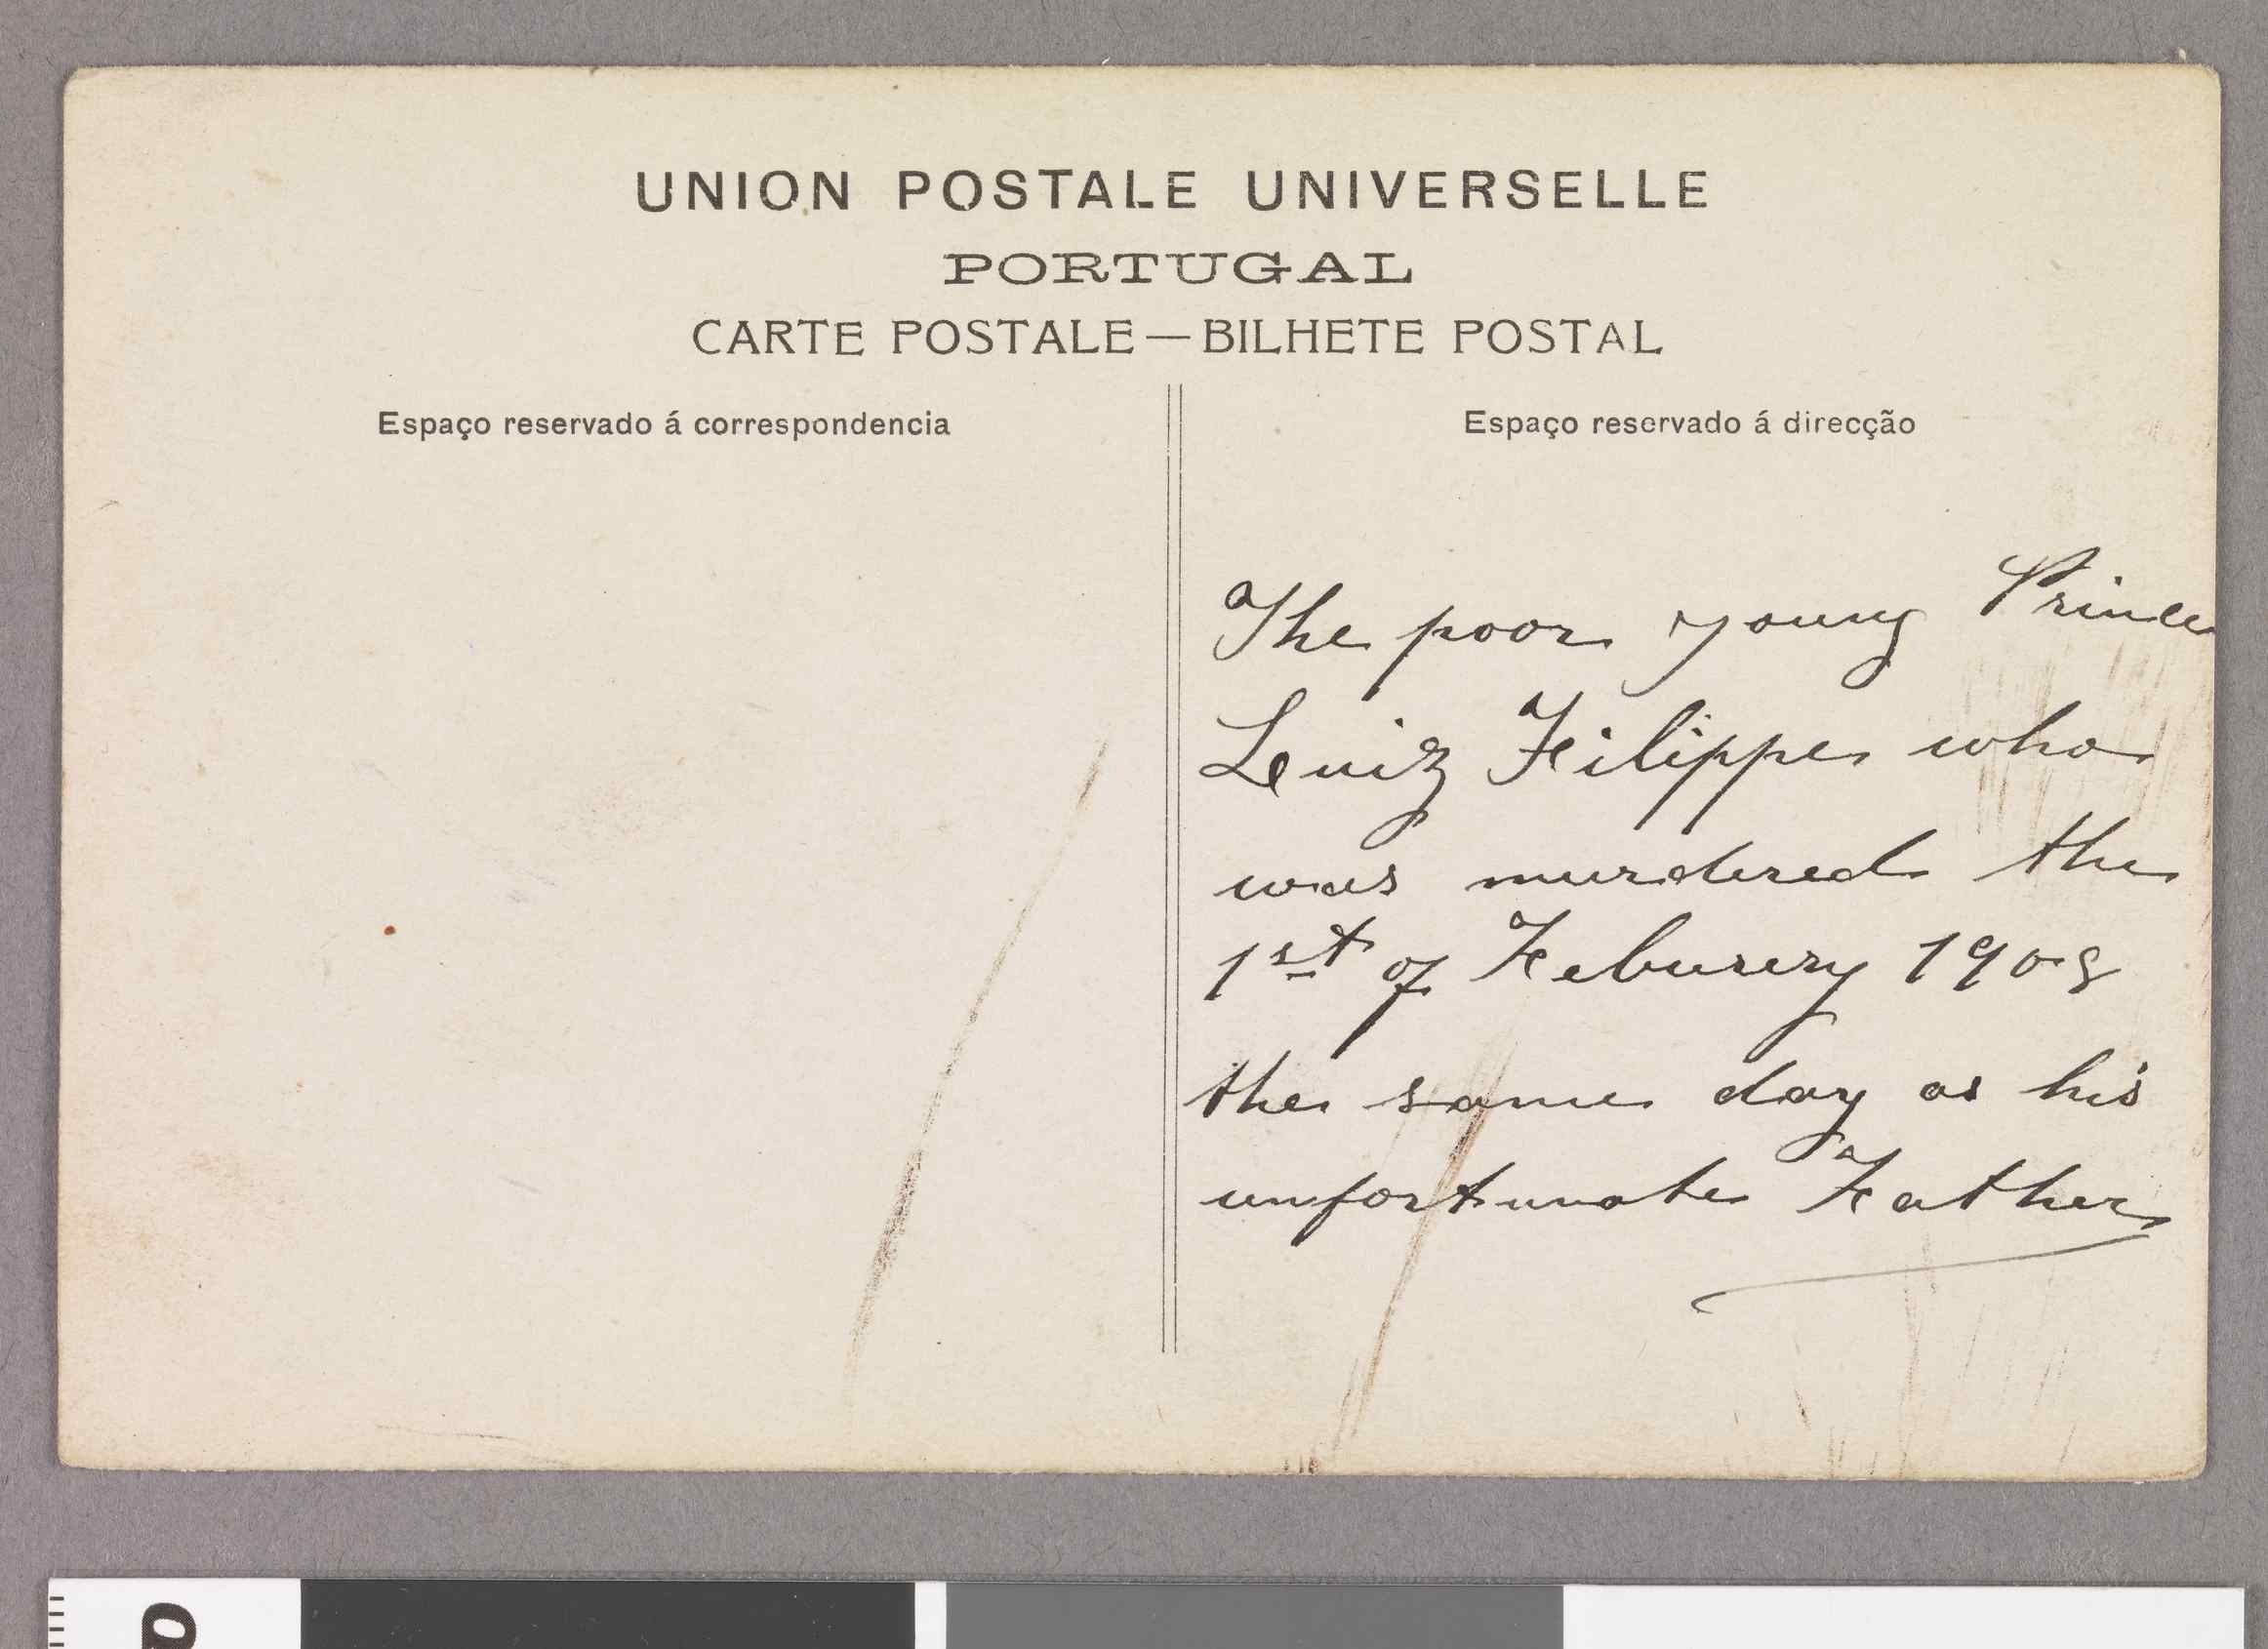 UNION POSTALE UNIVERSELLE
PORTUGAL
CARTE POSTALE—BILHETE POSTAL
Espaço reservado á correspondencia
Espaço reservado á direcção
The poor young Prince
Luiz Filippe who
was murdered the
1st of Feburery 1908
the same day as his
unfortunate Father
a